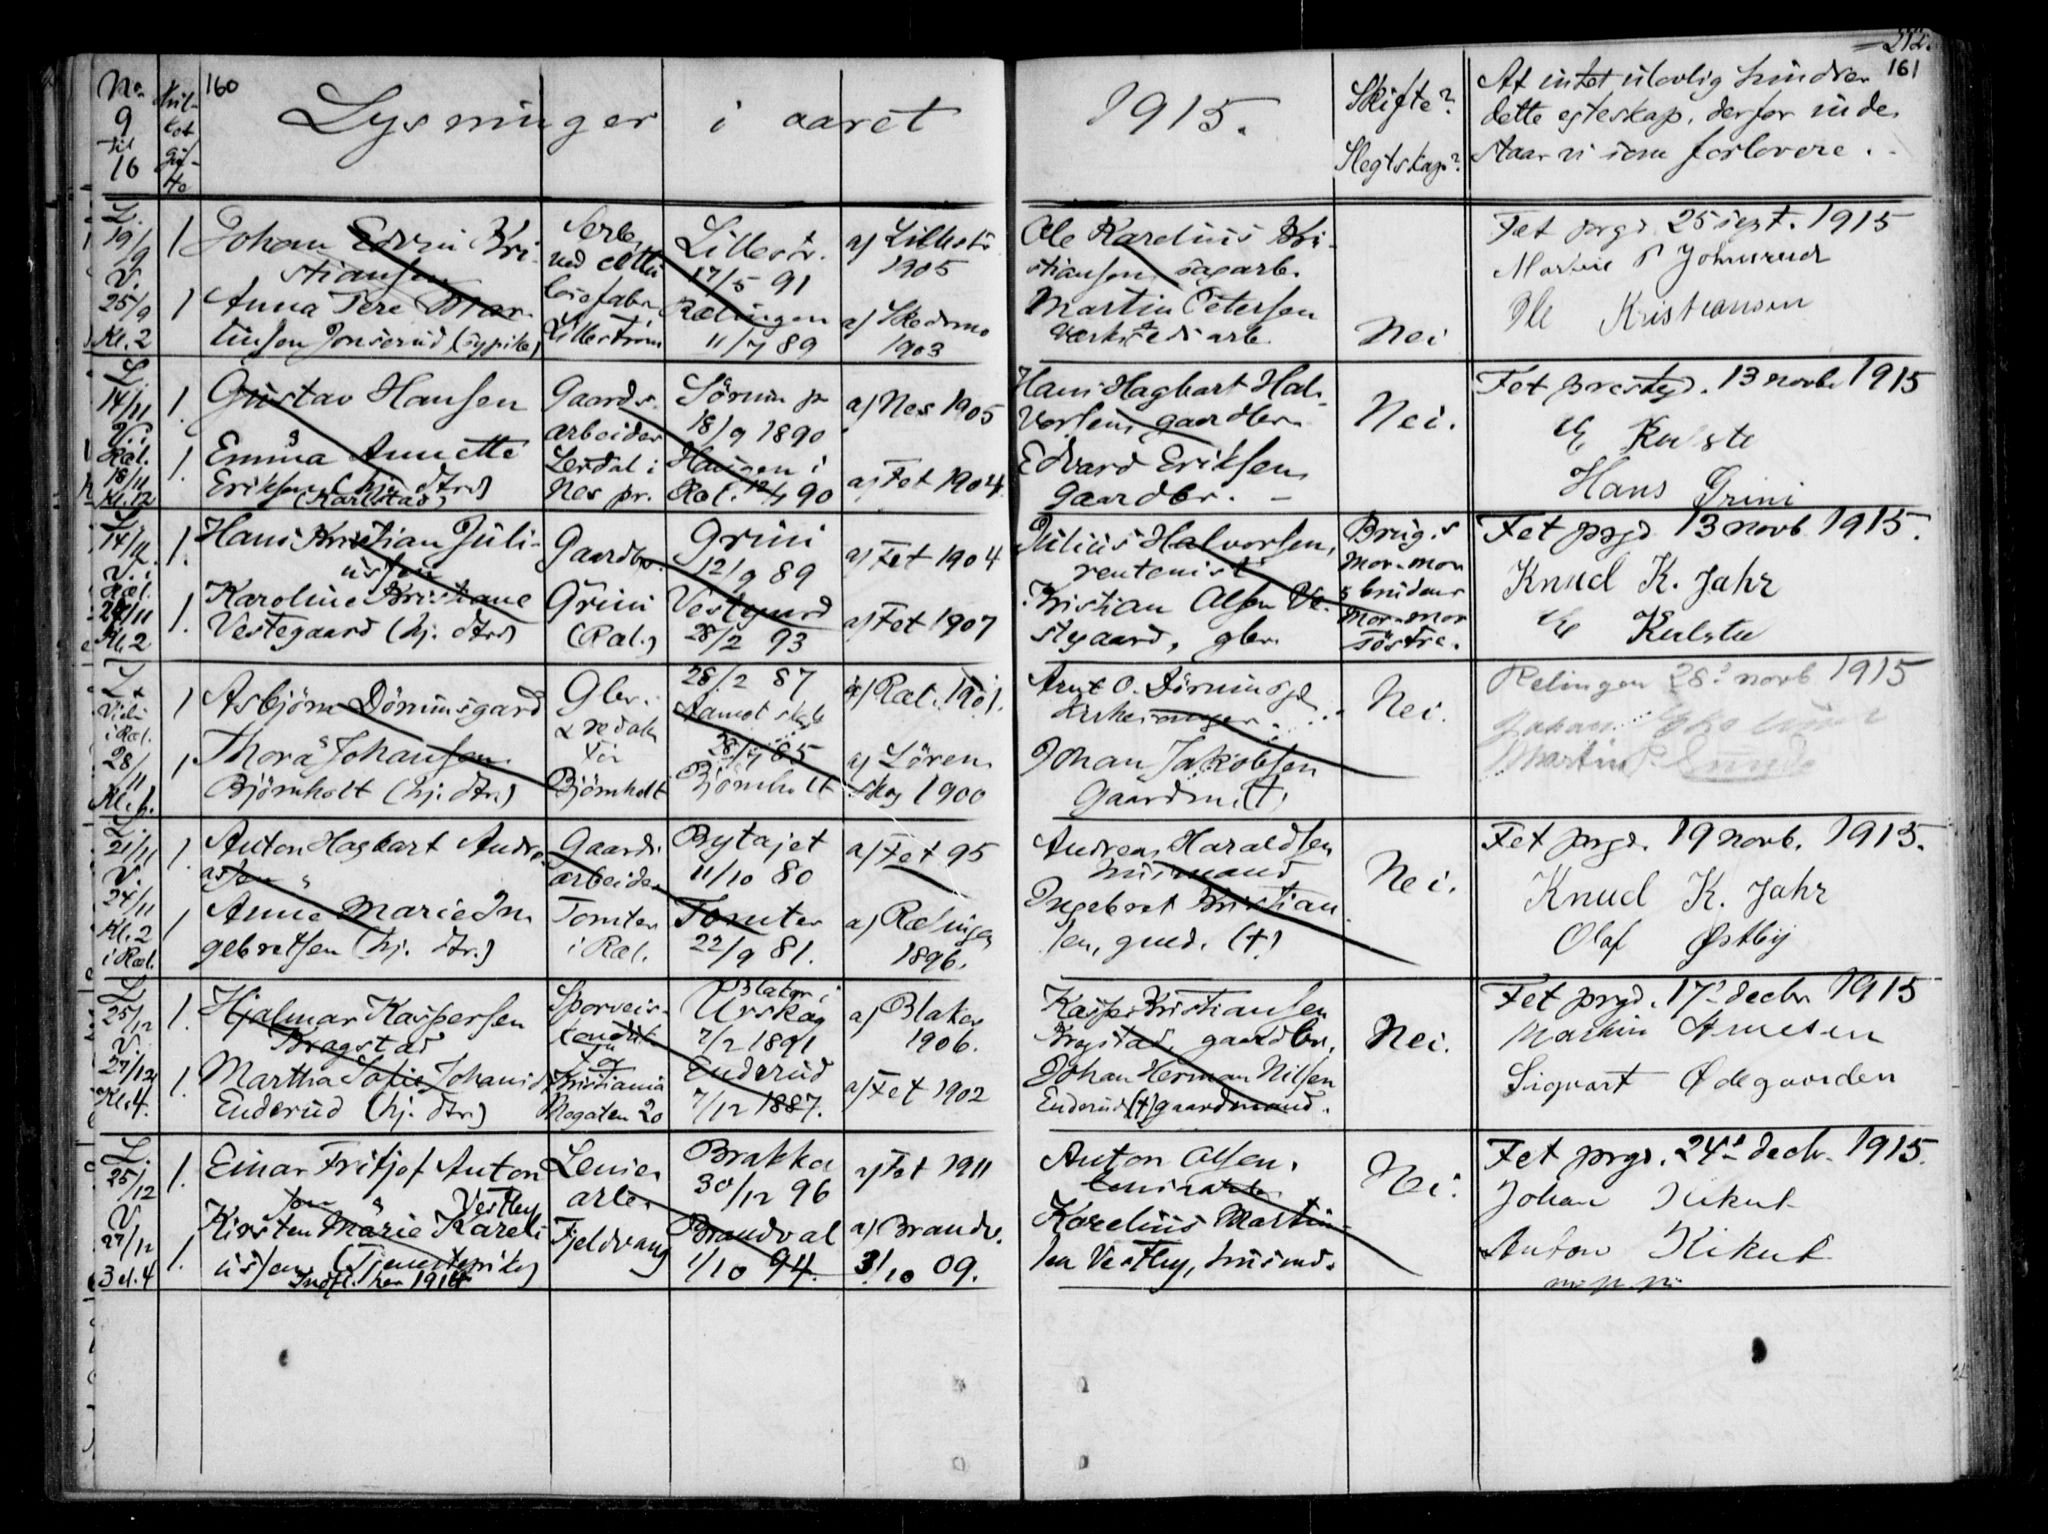 160
No.
9
til
16
Lysninger i aaret 1915.
Skifte?
Slegtskap?
161
At intet ulovlig hindrer
dette egteskap, derfor inde
staar vi som forlovere.
L.
19/9
V.
25/9
Kl. 2
1
1
Johan Edvin Kri-
stiansen
Anna Tere Mar-
tinsen Jonserud (sypike)
Lillestrøm
Lillestr.
17/5 91
Rælingen
11/7 89
a) Lillestr.
1905
a) Skedsmo
1903
Ole Karelius Kri-
stiansen sagarb.
Martin Petersen
værkstedsarb.
Nei
Fet prgd. 25 sept. 1915
Ole Kristiansen
L.
14/11
V. i
Ræl.
18/11
Kl. 12
1.
1.
Gustav Hansen
Emma Annette
Eriksen (hj. dtr.)
(Karlstad)
Gaards-
arbeider
Lerdal i
Nes pr.
Sørum pr
18/9 1890
Haugen i
Ræl. 90
a) Nes 1905
a) Fet 1904.
Hans Hagbart Hal-
vorsen, gaardbr.
Edvard Eriksen
gaardbr. –
Nei.
Fet prestgd. 13 novbr 1915
Hans Grini
L.
14/11
V. i
Ræl.
Kl. 2
1.
1.
Hans Kristian Juli-
ussen
Karoline Kristiane
Vestegaard (hj. dtr.)
Gaardbr.
Grini
(Ræl.)
Grini
12/9 89
Vestgaard
28/2 93
a) Fet 1904
a) Fet 1907
Julius Halvorsen,
rentenist
Kristian Olsen Ve-
stgaard, gbr.
Brug.s
mor-mor
& brudens
mor-mor
søstre.
Fet prgd 13 novb 1915.
Knud K. Jahr
L.
Viet
i Ræl.
28/11
Kl. 6.
1
1
Asbjørn Dønnumsgard
Thora Johansen
Bjørnholt (hj. dtr.)
Gbr.
& redak-
tør
Bjørnholt
28/2 87
Aamot
85
Bjørnholt
a) Ræl. 1901.
a) Løren-
skog 1900
Arnt O.
kirkesanger
Johan Jakobsen
Gaardm. (†)
Nei.
Relingen 28' novb 1915
Johan
Martin
L.
21/11
V.
24/11
Kl. 2
i Ræl.
1.
1
Anton Hagbart Andre-
assen
Anne Marie In-
gebretsen (hj. dtr.)
Gaards-
arbeider
Tomter
i Ræl.
Bytajet
11/10 80
Tomter
22/9 81.
a) Fet 95
a) Rælingen
1896.
Andreas Haraldsen
husmand
Ingebret Kristian-
sen, gmd. (†)
Nei.
Fet prgd. 19 novb. 1915.
Knud K. Jahr
Olaf Østby
L.
25/12
V.
27/12
Kl. 4.
1.
1.
Hjalmar Kaspersen
Bragstad
Martha Sofie Johansd.
Enderud (hj. dtr.)
Sporveis-
konduk-
tør
Kristiania
Mogaten 20
Blaker i
Urskog
7/2 1891
Enderud
7/12 1887.
a) Blaker
1906.
a) Fet 1902
Kasper Kristiansen
gaardbr.
Johan Herman Nilsen
Enderud (†) gaardmand.
Nei.
Fet prgd. 17' decbr 1915
Martin Arnesen
Sigvart Ødegaarden
L.
25/12
V
27/12
Kl. 4
1.
1.
Einar Fritjof Anton-
sen
Kirsten Marie Kareli-
Vestby
ussen (Tjenestepike)
Indfl. her 1914
Lense-
arb.
Fjeldvang
Brakka
30/12 96
Brandval
1/10 94.
a) Fet 1911
a) Brandv.
3/10 09.
Anton Olsen,
lensearb.
Karelius Martin-
sen Vestby, husmd.
Nei.
Fet prgd. 24' decb. 1915.
Johan Kikut
Anton Kikut
m. p. p.